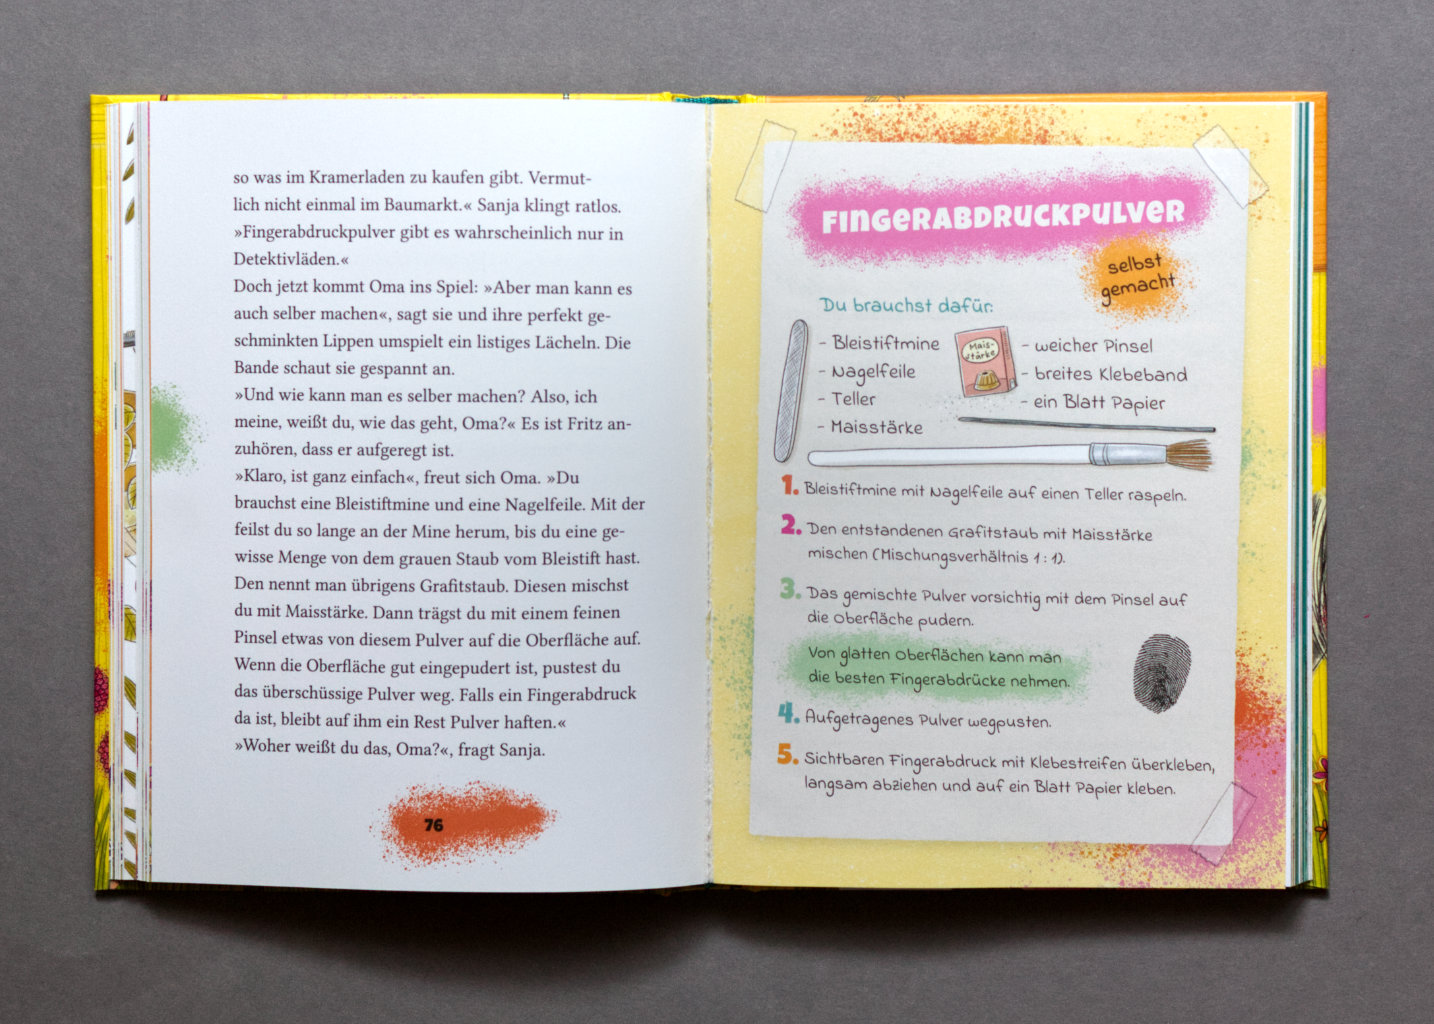 so was im Kramerladen zu kaufen gibt. Vermut-
lich nicht einmal im Baumarkt.« Sanja klingt ratlos.
»Fingerabdruckpulver gibt es wahrscheinlich nur in
Detektivläden.«
Doch jetzt kommt Oma ins Spiel: »Aber man kann es
auch selber machen«, sagt sie und ihre perfekt ge-
schminkten Lippen umspielt ein listiges Lächeln. Die
Bande schaut sie gespannt an.
»Und wie kann man es selber machen? Also, ich
meine, weißt du, wie das geht, Oma?« Es ist Fritz an-
zuhören, dass er aufgeregt ist.
»Klaro, ist ganz einfach«, freut sich Oma. »Du
brauchst eine Bleistiftmine und eine Nagelfeile. Mit der
feilst du so lange an der Mine herum, bis du eine ge-
wisse Menge von dem grauen Staub vom Bleistift hast.
Den nennt man übrigens Grafitstaub. Diesen mischst
du mit Maisstärke. Dann trägst du mit einem feinen
Pinsel etwas von diesem Pulver auf die Oberfläche auf.
Wenn die Oberfläche gut eingepudert ist, pustest du
das überschüssige Pulver weg. Falls ein Fingerabdruck
da ist, bleibt auf ihm ein Rest Pulver haften.«
»Woher weißt du das, Oma?«, fragt Sanja.
76
FINGERABDRUCKPULVER
selbst
gemacht
Du brauchst dafür:
- Bleistiftmine
- Nagelfeile
- Teller
- Maisstärke
Mais-
stärke
- weicher Pinsel
- breites Klebeband
- ein Blatt Papier
1. Bleistiftmine mit Nagelfeile auf einen Teller raspeln.
2. Den entstandenen Grafitstaub mit Maisstärke
mischen (Mischungsverhältnis 1 : 1).
3. Das gemischte Pulver vorsichtig mit dem Pinsel auf
die Oberfläche pudern.
Von glatten Oberflächen kann man
die besten Fingerabdrücke nehmen.
4. Aufgetragenes Pulver wegpusten.
5. Sichtbaren Fingerabdruck mit Klebestreifen überkleben,
langsam abziehen und auf ein Blatt Papier kleben.